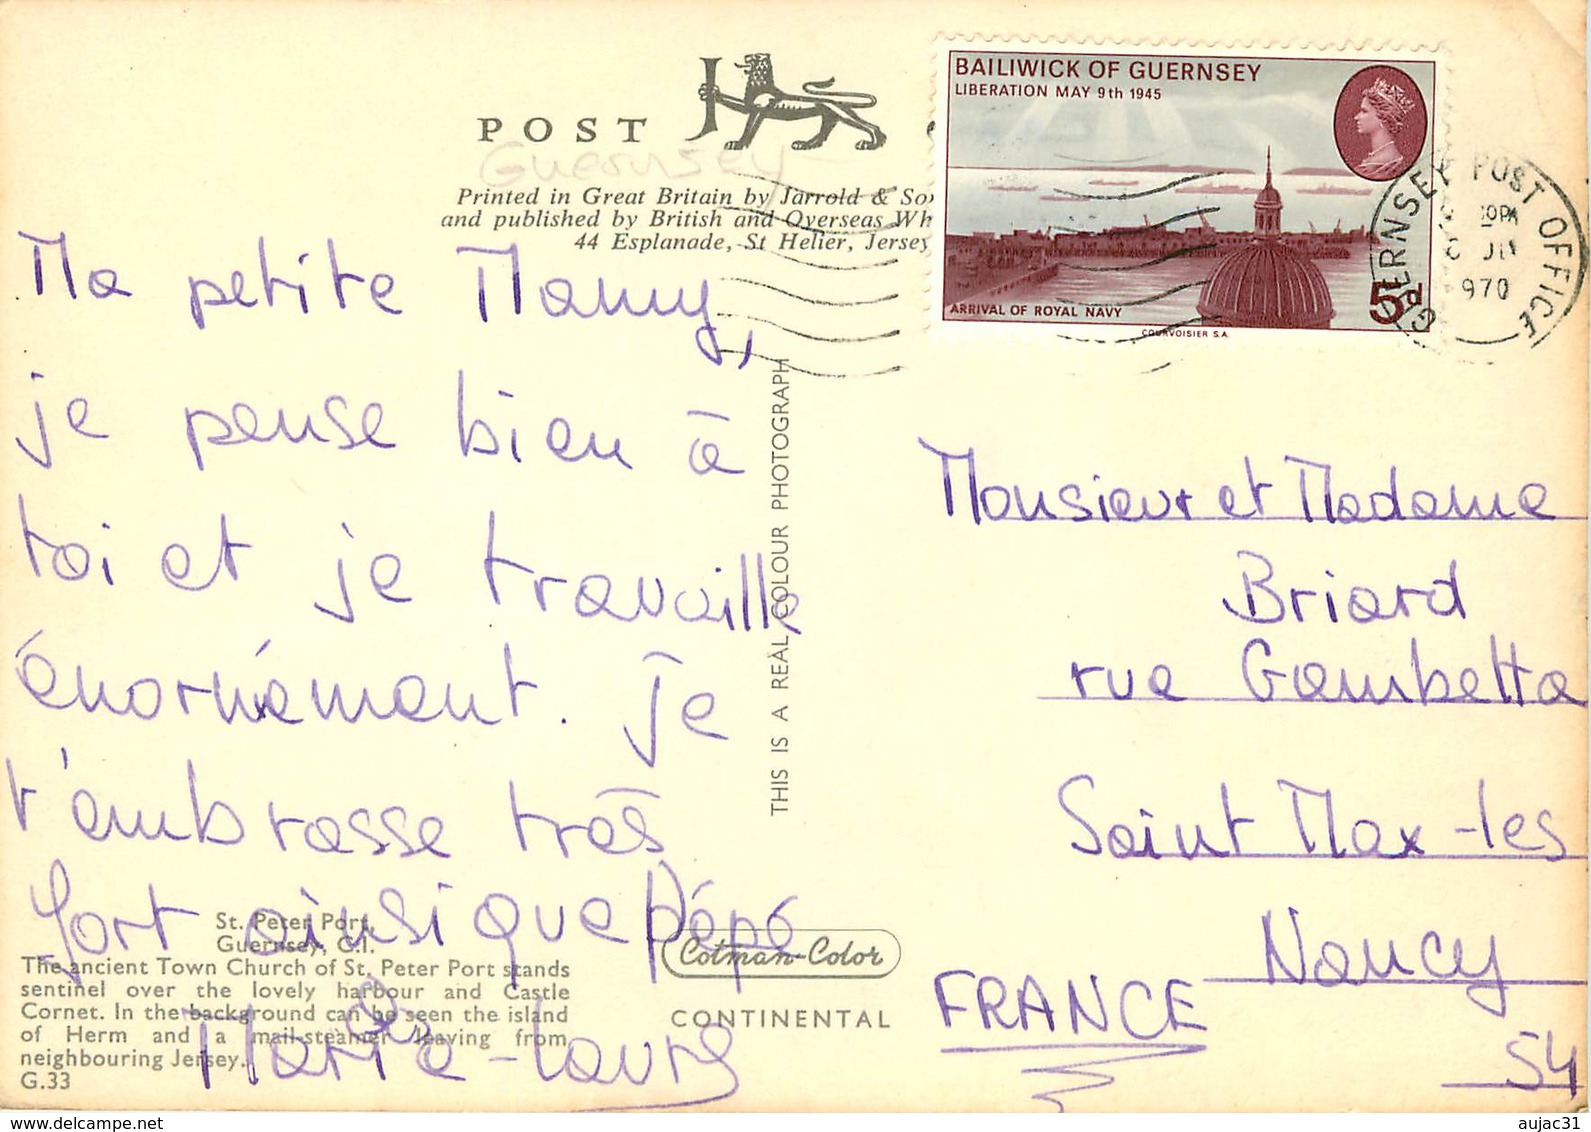 POST
Guernsey
Printed in Great Britain by Jarrold & So
and published by British and Overseas Wh
44 Esplanade, St Helier, Jersey
BAILIWICK OF GUERNSEY
LIBERATION MAY 9th 1945
ARRIVAL OF ROYAL NAVY
5d
COURVOISIER S.A.
GUERNSEY POST OFFICE
970
Ma petite Mamy,
je pense bien à
toi et je travaille
énormément. Je
t'embrasse très
fort ainsi que Pépé
Marie-Laure
THIS IS A REAL COLOUR PHOTOGRAPH
St. Peter Port,
Guernsey, C.I.
The ancient Town Church of St. Peter Port stands
sentinel over the lovely harbour and Castle
Cornet. In the background can be seen the island
of Herm and a mail-steamer leaving from
neighbouring Jersey.
G.33
Cotman-Color
CONTINENTAL
Monsieur et Madame
Briard
rue Gambetta
Saint Max-les
Nancy
54
FRANCE
www.delcampe.net
aujac31